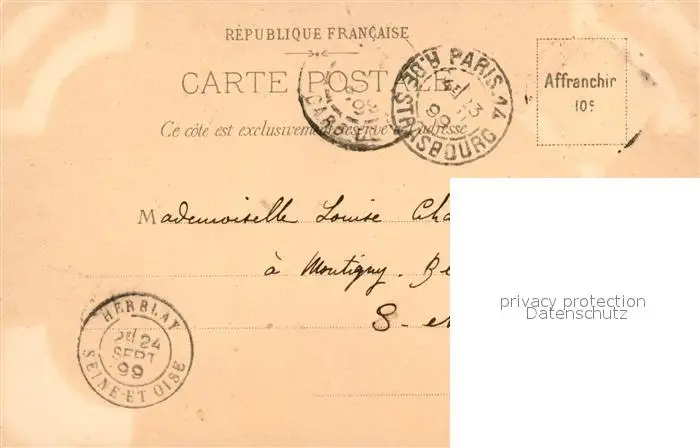 RÉPUBLIQUE FRANÇAISE
CARTE POSTALE
Ce côté est exclusivement réservé à l'adresse
PARIS 44 R. DE STRASBOURG
99
Affranchir
10c
Mademoiselle Louise Cha
à Montigny. Be
S-e
HERBLAY
24
SEPT
99
SEINE-ET-OISE
privacy protection
Datenschutz